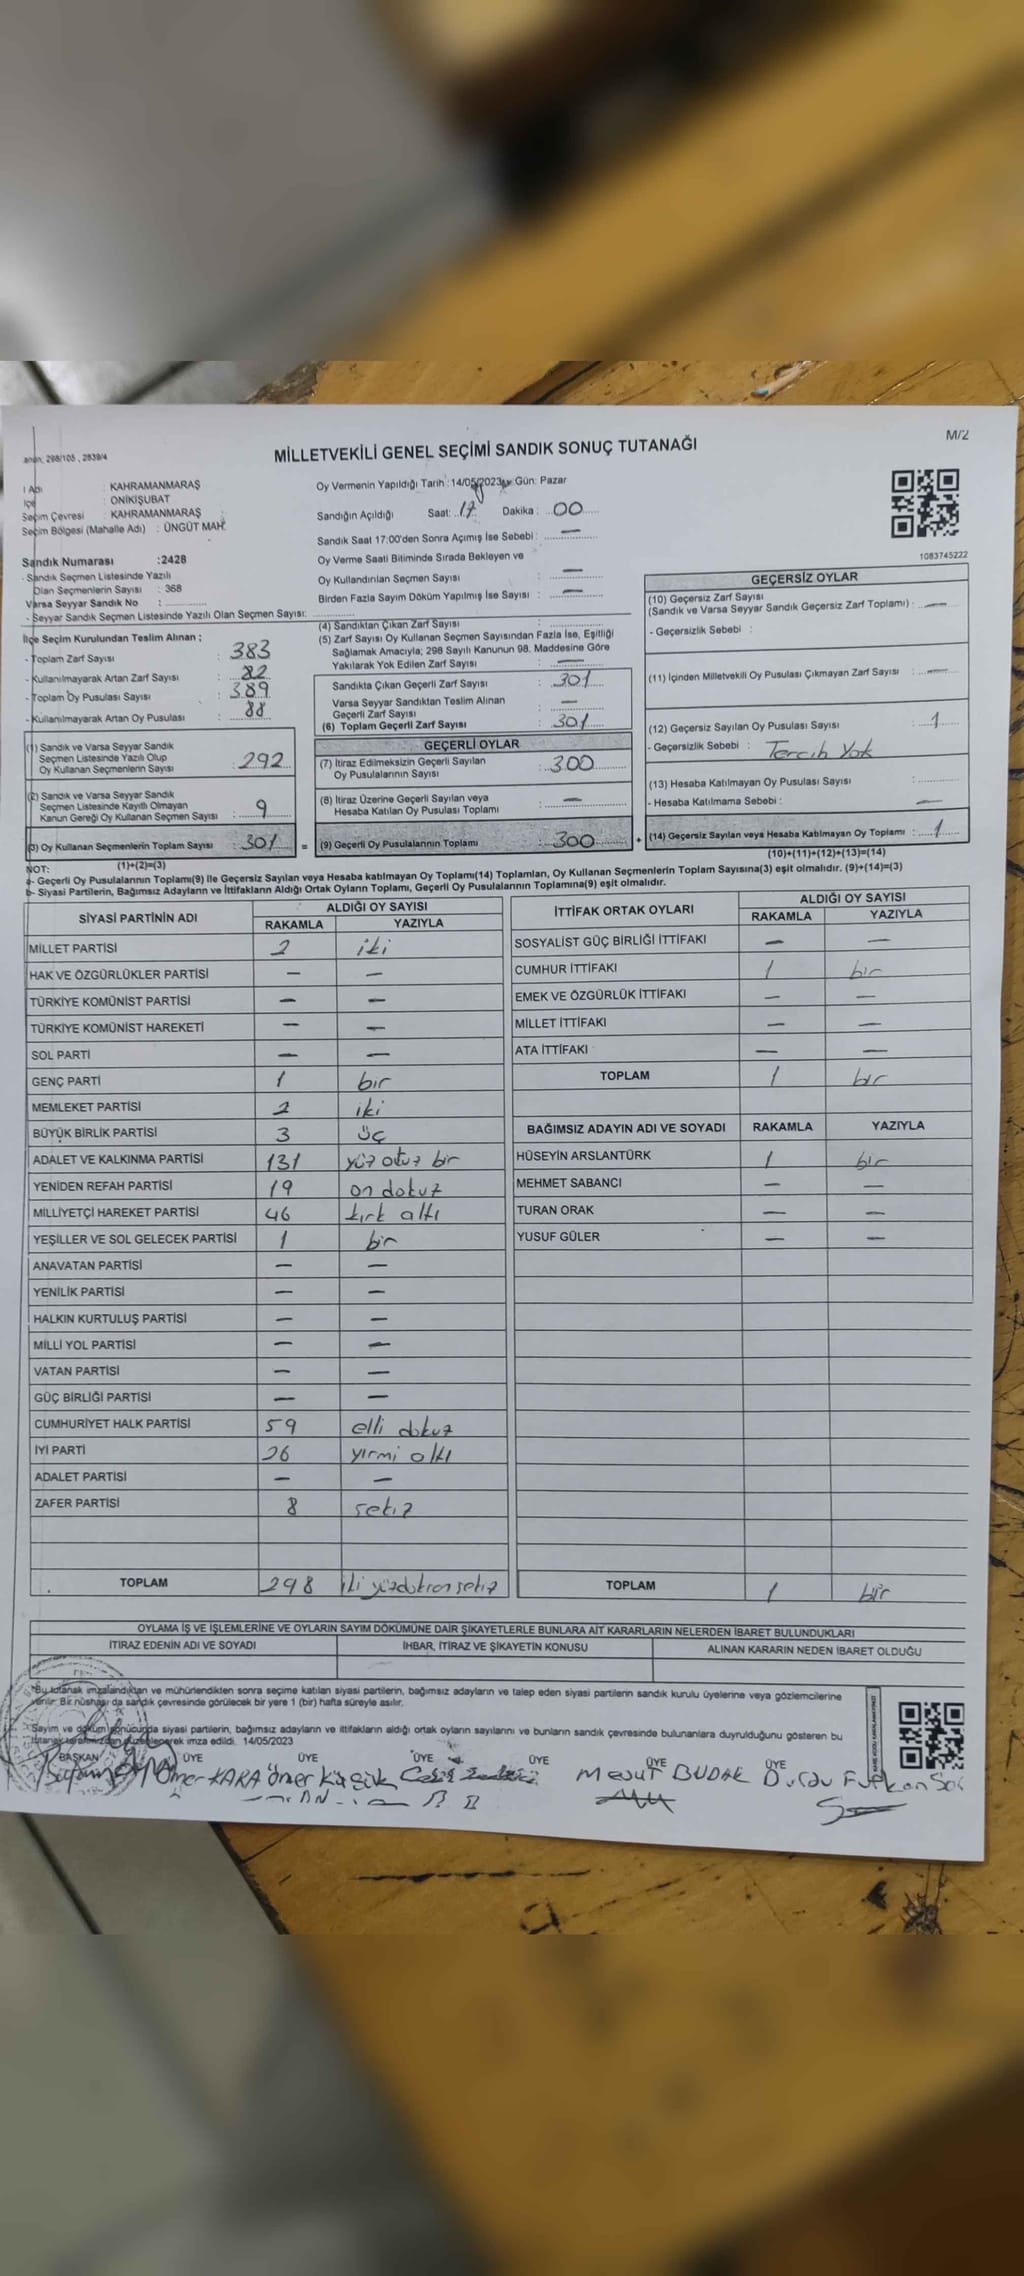 M/2
MİLLETVEKİLİ GENEL SEÇİMİ SANDIK SONUÇ TUTANAĞI
298/105 , 2839/4
KAHRAMANMARAŞ
ONİKİŞUBAT
Seçim Çevresi : KAHRAMANMARAŞ
Seçim Bölgesi (Mahalle Adı) : ÜNGÜT MAH
Sandık Numarası :2428
- Sandık Seçmen Listesinde Yazılı
Olan Seçmenlerin Sayısı : 368
Varsa Seyyar Sandık No :
- Seyyar Sandık Seçmen Listesinde Yazılı Olan Seçmen Sayısı:
Oy Vermenin Yapıldığı Tarih :14/05/2023 Gün: Pazar
Sandığın Açıldığı Saat: 17 Dakika : 00
Sandık Saat 17:00'den Sonra Açımış İse Sebebi : —
Oy Verme Saati Bitiminde Sırada Bekleyen ve
Oy Kullandırılan Seçmen Sayısı : —
Birden Fazla Sayım Döküm Yapılmış İse Sayısı : —
1083745222
İlçe Seçim Kurulundan Teslim Alınan ;
- Toplam Zarf Sayısı : 383
- Kullanılmayarak Artan Zarf Sayısı : 82
- Toplam Oy Pusulası Sayısı : 389
- Kullanılmayarak Artan Oy Pusulası : 88
(1) Sandık ve Varsa Seyyar Sandık
Seçmen Listesinde Yazılı Olup
Oy Kullanan Seçmenlerin Sayısı : 292
(2) Sandık ve Varsa Seyyar Sandık
Seçmen Listesinde Kayıtlı Olmayan
Kanun Gereği Oy Kullanan Seçmen Sayısı : 9
(3) Oy Kullanan Seçmenlerin Toplam Sayısı : 301 =
(1)+(2)=(3)
(4) Sandıktan Çıkan Zarf Sayısı :
(5) Zarf Sayısı Oy Kullanan Seçmen Sayısından Fazla İse, Eşitliği
Sağlamak Amacıyla; 298 Sayılı Kanunun 98. Maddesine Göre
Yakılarak Yok Edilen Zarf Sayısı : —
Sandıkta Çıkan Geçerli Zarf Sayısı : 301
Varsa Seyyar Sandıktan Teslim Alınan
Geçerli Zarf Sayısı : —
(6) Toplam Geçerli Zarf Sayısı : 301
GEÇERLİ OYLAR
(7) İtiraz Edilmeksizin Geçerli Sayılan
Oy Pusulalarının Sayısı : 300
(8) İtiraz Üzerine Geçerli Sayılan veya
Hesaba Katılan Oy Pusulası Toplamı : —
(9) Geçerli Oy Pusulalarının Toplamı : 300 +
GEÇERSİZ OYLAR
(10) Geçersiz Zarf Sayısı
(Sandık ve Varsa Seyyar Sandık Geçersiz Zarf Toplamı) : —
- Geçersizlik Sebebi :
(11) İçinden Milletvekili Oy Pusulası Çıkmayan Zarf Sayısı : —
(12) Geçersiz Sayılan Oy Pusulası Sayısı : 1
- Geçersizlik Sebebi : Tercih Yok
(13) Hesaba Katılmayan Oy Pusulası Sayısı :
- Hesaba Katılmama Sebebi : —
(14) Geçersiz Sayılan veya Hesaba Katılmayan Oy Toplamı : 1
(10)+(11)+(12)+(13)=(14)
NOT:
a- Geçerli Oy Pusulalarının Toplamı(9) ile Geçersiz Sayılan veya Hesaba katılmayan Oy Toplamı(14) Toplamları, Oy Kullanan Seçmenlerin Toplam Sayısına(3) eşit olmalıdır. (9)+(14)=(3)
b- Siyasi Partilerin, Bağımsız Adayların ve İttifakların Aldığı Ortak Oyların Toplamı, Geçerli Oy Pusulalarının Toplamına(9) eşit olmalıdır.
SİYASİ PARTİNİN ADI ALDIĞI OY SAYISI
RAKAMLA YAZIYLA
MİLLET PARTİSİ 2 iki
HAK VE ÖZGÜRLÜKLER PARTİSİ — —
TÜRKİYE KOMÜNİST PARTİSİ — —
TÜRKİYE KOMÜNİST HAREKETİ — —
SOL PARTİ — —
GENÇ PARTİ 1 bir
MEMLEKET PARTİSİ 2 iki
BÜYÜK BİRLİK PARTİSİ 3 üç
ADALET VE KALKINMA PARTİSİ 131 yüz otuz bir
YENİDEN REFAH PARTİSİ 19 on dokuz
MİLLİYETÇİ HAREKET PARTİSİ 46 kırk altı
YEŞİLLER VE SOL GELECEK PARTİSİ 1 bir
ANAVATAN PARTİSİ — —
YENİLİK PARTİSİ — —
HALKIN KURTULUŞ PARTİSİ — —
MİLLİ YOL PARTİSİ — —
VATAN PARTİSİ — —
GÜÇ BİRLİĞİ PARTİSİ — —
CUMHURİYET HALK PARTİSİ 59 elli dokuz
İYİ PARTİ 26 yirmi altı
ADALET PARTİSİ — —
ZAFER PARTİSİ 8 sekiz
TOPLAM 298 iki yüzdoksan sekiz
İTTİFAK ORTAK OYLARI ALDIĞI OY SAYISI
RAKAMLA YAZIYLA
SOSYALİST GÜÇ BİRLİĞİ İTTİFAKI — —
CUMHUR İTTİFAKI 1 bir
EMEK VE ÖZGÜRLÜK İTTİFAKI — —
MİLLET İTTİFAKI — —
ATA İTTİFAKI — —
TOPLAM 1 bir
BAĞIMSIZ ADAYIN ADI VE SOYADI RAKAMLA YAZIYLA
HÜSEYİN ARSLANTÜRK 1 bir
MEHMET SABANCI — —
TURAN ORAK — —
YUSUF GÜLER — —
TOPLAM 1 bir
OYLAMA İŞ VE İŞLEMLERİNE VE OYLARIN SAYIM DÖKÜMÜNE DAİR ŞİKAYETLERLE BUNLARA AİT KARARLARIN NELERDEN İBARET BULUNDUKLARI
İTİRAZ EDENİN ADI VE SOYADI İHBAR, İTİRAZ VE ŞİKAYETİN KONUSU ALINAN KARARIN NEDEN İBARET OLDUĞU
Bu tutanak imzalandıktan ve mühürlendikten sonra seçime katılan siyasi partilerin, bağımsız adayların ve talep eden siyasi partilerin sandık kurulu üyelerine veya gözlemcilerine
verilir. Bir nüshası da sandık çevresinde görülecek bir yere 1 (bir) hafta süreyle asılır.
Sayım ve döküm sonucunda siyasi partilerin, bağımsız adayların ve ittifakların aldığı ortak oyların sayılarını ve bunların sandık çevresinde bulunanlara duyrulduğunu gösteren bu
tutanak tarafımızdan düzenlenerek imza edildi. 14/05/2023
BAŞKAN ÜYE ÜYE ÜYE ÜYE ÜYE ÜYE
Ömer KARA Ömer Küçük Mesut BUDAK Furkan